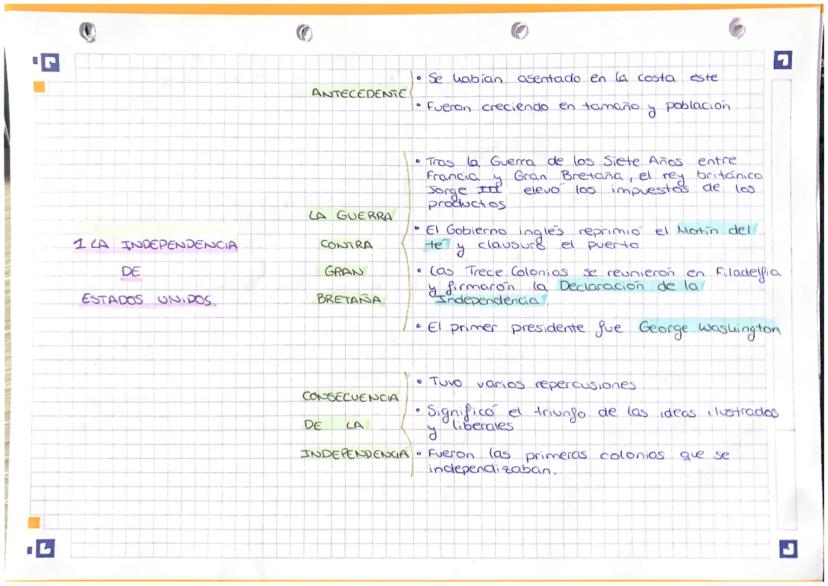 1 LA INDEPENDENCIA
DE
ESTADOS UNIDOS.
ANTECEDENTE
• Se habían asentado en la costa este
• Fueron creciendo en tamaño y población
LA GUERRA
CONTRA
GRAN
BRETAÑA
• Tras la Guerra de los Siete Años entre
Francia y Gran Bretaña, el rey británico
Jorge III elevó los impuestos de los
productos
• El Gobierno inglés reprimió el Motín del
té y clausuró el puerto
• Las Trece Colonias se reunieron en Filadelfia
y firmarón la Declaración de la
Independencia
• El primer presidente fue George Washington
CONSECUENCIA
DE LA
INDEPENDENCIA
• Tuvo varios repercusiones
• Significó el triunfo de las ideas ilustradas
y liberales
• Fueron las primeras colonias que se
independizaban.